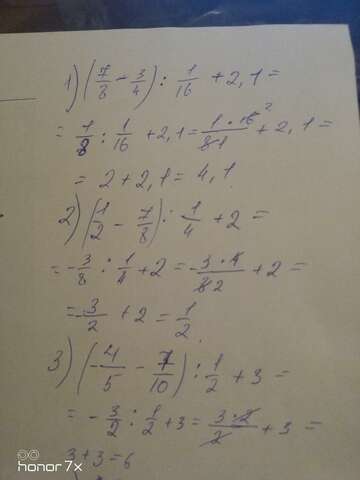 1) (7/8 - 3/4) : 1/16 + 2,1 =
= 1/8 : 1/16 + 2,1 = 1·16/81 2 + 2,1 =
= 2 + 2,1 = 4,1.
2) (1/2 - 7/8) : 1/4 + 2 =
= -3/8 : 1/4 + 2 = -3·4/82 + 2 =
= -3/2 + 2 = 1/2.
3) (-4/5 - 7/10) : 1/2 + 3 =
= -3/2 : 1/2 + 3 = 3·2/2 + 3 =
3 + 3 = 6
honor 7x